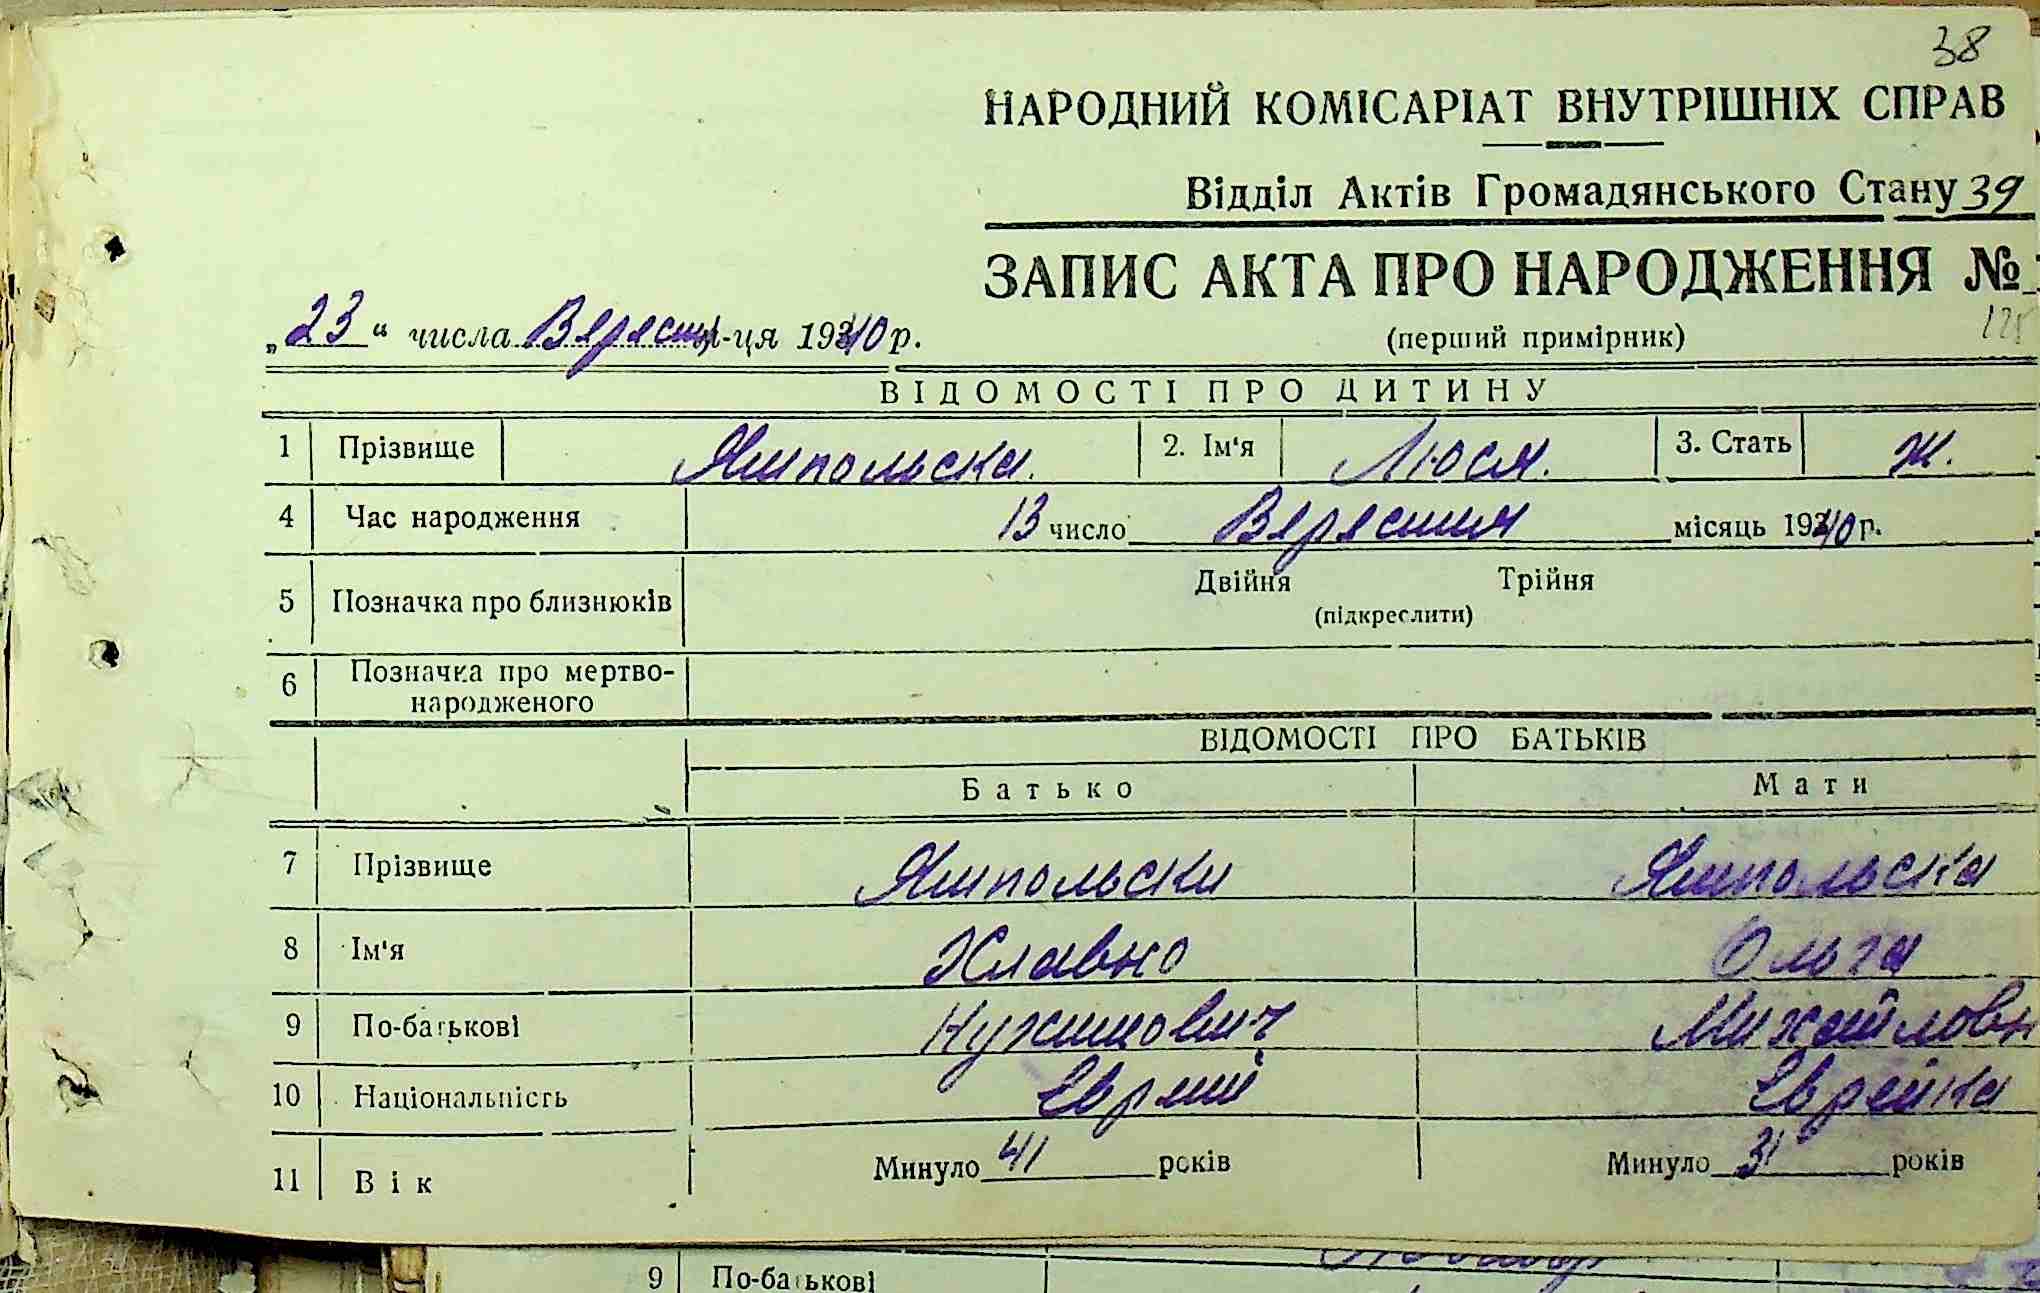 38
НАРОДНИЙ КОМІСАРІАТ ВНУТРІШНІХ СПРАВ
Відділ Актів Громадянського Стану 39
ЗАПИС АКТА ПРО НАРОДЖЕННЯ №
„23“ числа Вересня м-ця 1940 р.
(перший примірник)
ВІДОМОСТІ ПРО ДИТИНУ
1 Прізвище Ямпольска. 2. Ім'я Люся. 3. Стать Ж.
4 Час народження 13 число Вересня місяць 1940 р.
5 Позначка про близнюків Двійня Трійня
(підкреслити)
6 Позначка про мертво-
народженого
ВІДОМОСТІ ПРО БАТЬКІВ
Батько Мати
7 Прізвище Ямпольски Ямпольска
8 Ім'я Клавно Ольга
9 По-батькові Нухимович Михайловн
10 Національність Еврей Еврейка
11 Вік Минуло 41 років Минуло 31 років
9 По-батькові